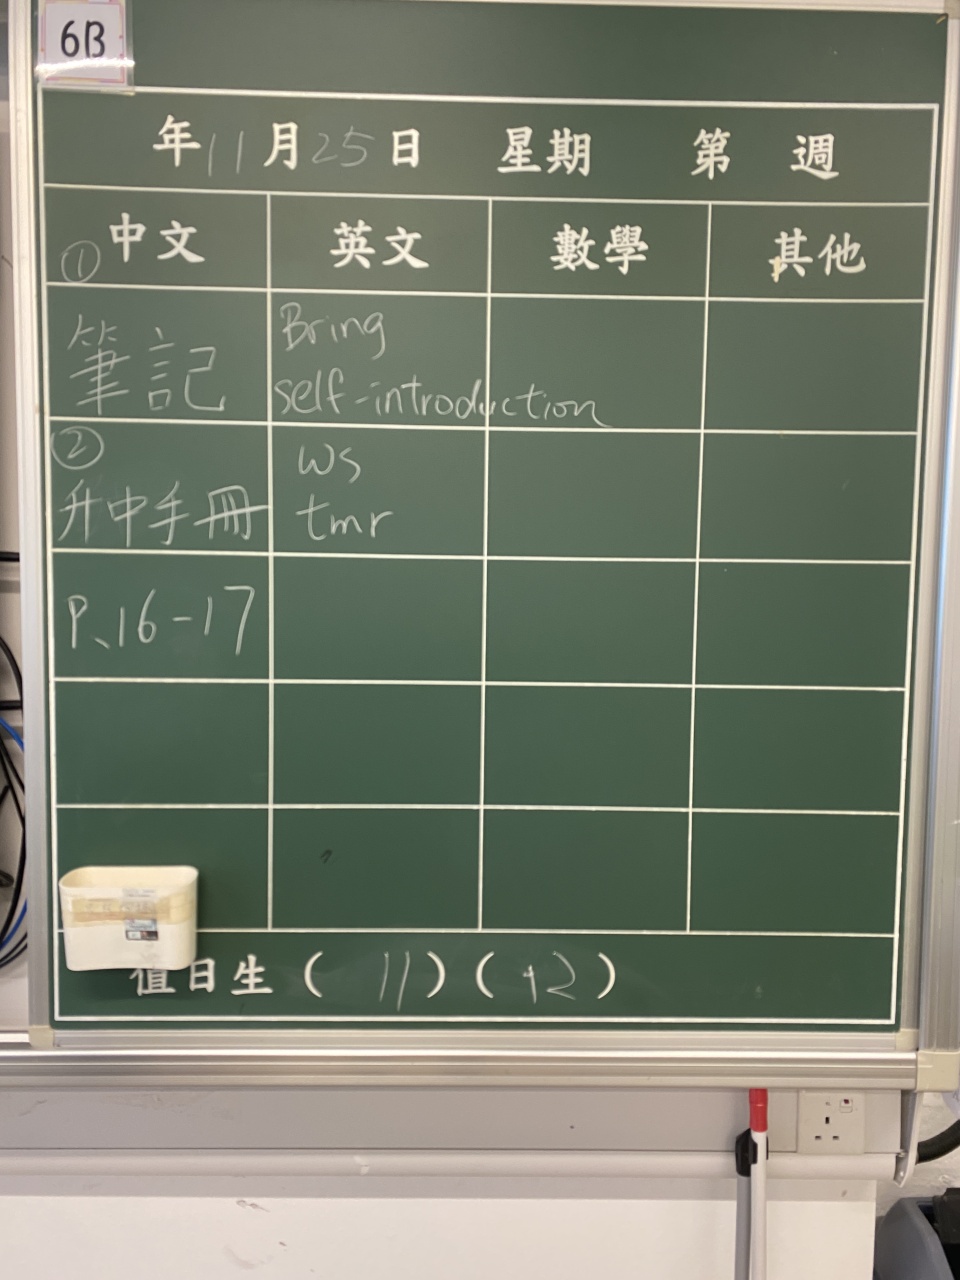 6B
年11月25日 星期 第 週
中文 英文 數學 其他
① 筆記
Bring
self-introduction
② 升中手冊
ws
tmr
P、16-17
值日生( 11 )( 12 )